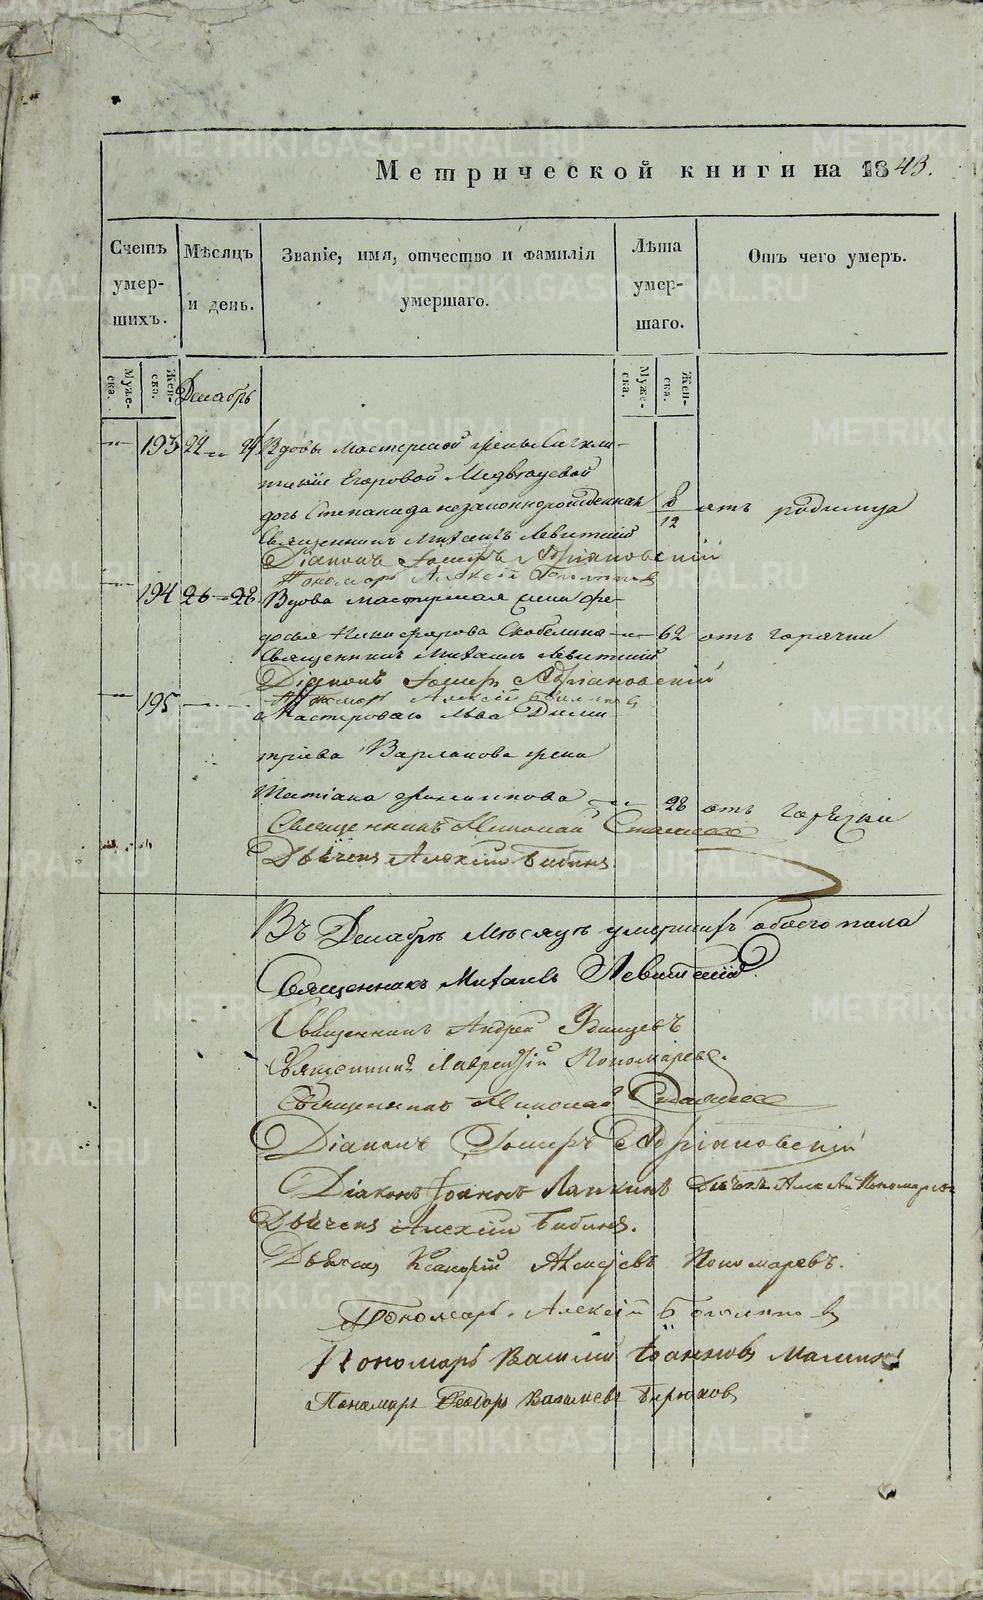 Метрической книги на 1843.
Счетъ умер-шихъ.
Мѣсяцъ и день.
Званіе, имя, отчество и фамилія умершаго.
Лѣта умер-шаго.
Отъ чего умеръ.
Муже-ска.
Жен-ска.
Муже-ска.
Жен-ска.
Декабрь
193 22 24 Вдовы мастерской жены
Егоровой Медвѣдевой
дочь Степанида незаконнорожденная 8/12 отъ родимца
Священникъ Михаилъ Левитскій
Діаконъ Іосифъ Адріановскій
Пономарь Алексій
194 26 28 Вдова мастерская жена Ѳе-
досья Никифорова Скобелина 62 отъ горячки
Священникъ Михаилъ Левитскій
Діаконъ Іосифъ Адріановскій
Пономарь Алексій
195
Мастероваго Льва Дими
тріева Варлакова жена
Татіана Филиппова 28 отъ горячки
Священникъ Николай
Дьячекъ Алексій Бабинъ
Въ Декабрѣ мѣсяцѣ умершихъ обоего пола
Священникъ Михаилъ Левитскій.
Священникъ Андрей Удинцевъ
Священникъ Лаврентій Пономаревъ.
Священникъ Николай
Діаконъ Іосифъ Адріановскій
Діаконъ Іоаннъ Лапкинъ Дьячекъ Алексѣй Пономаревъ
Дьячекъ Алексій Бабинъ.
Дьячекъ Алексѣевъ Пономаревъ.
Пономарь Алексій
Пономарь Василій Іоанновъ
Пономарь Ѳеодоръ Васильевъ Бирюковъ